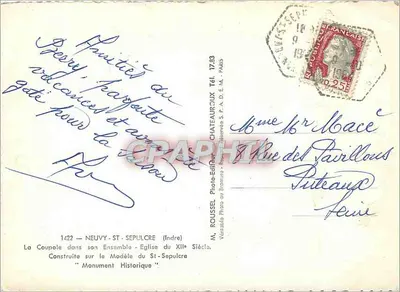 Amitiés du
Berry, parfaite
vacances et avons été
gâté pour la saison
1422 - NEUVY-ST-SEPULCRE (Indre)
La Coupole dans son Ensemble - Eglise du XIIe Siècle.
Construite sur le Modèle du St-Sepulcre
" Monument Historique "
M. ROUSSEL Photo-Editeur CHATEAUROUX Tél. 17.83
Véritable Photo au Bromure S.P.A.D.E.M. - PARIS
CPAPHIL
NEUVY-ST-SEPUL
18
9
19
FRANÇAISE
0,25F
Mme Mr Macé
8 Rue des Pavillons
Puteaux
Seine